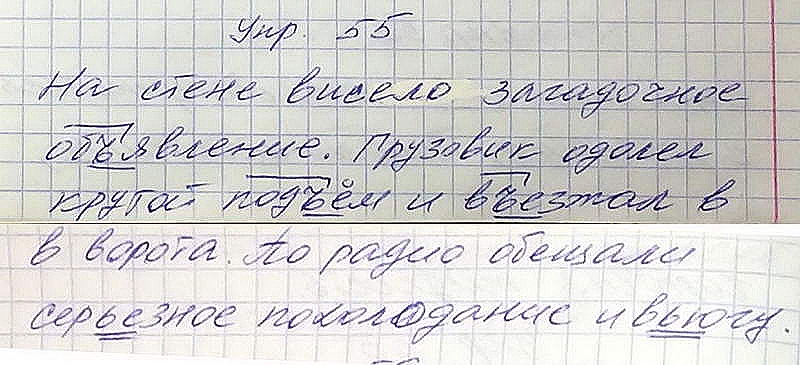 Упр. 55
На стене висело загадочное
объявление. Грузовик одолел
крутой подъём и въезжал в
в ворота. По радио обещали
серьезное похолодание и вьюгу.